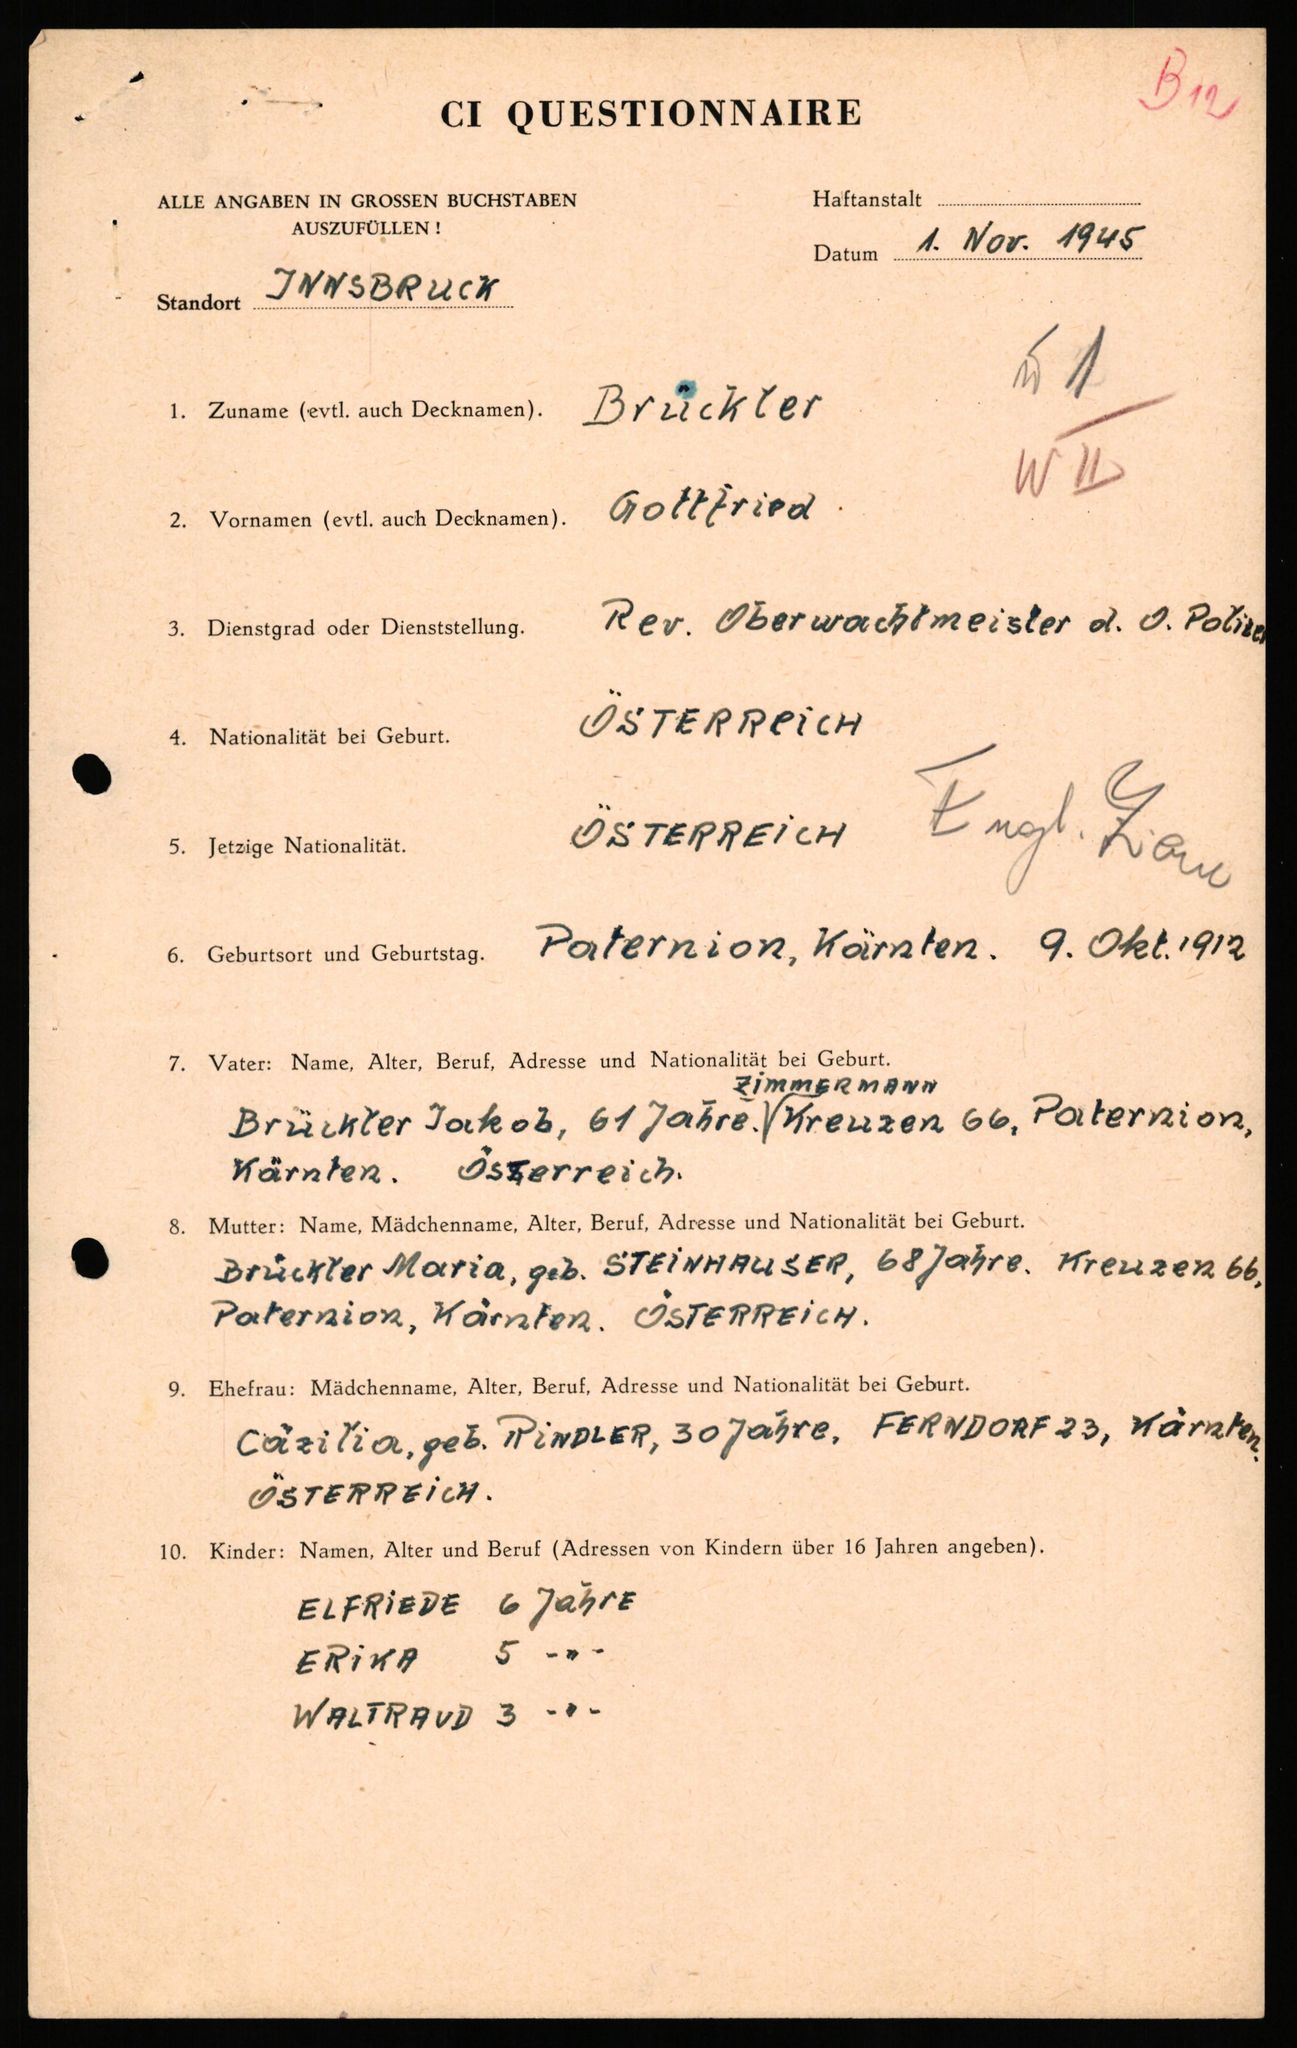 B12
CI QUESTIONNAIRE
ALLE ANGABEN IN GROSSEN BUCHSTABEN
AUSZUFÜLLEN!
Haftanstalt
Datum 1. Nov. 1945
Standort INNSBRUCK
1. Zuname (evtl. auch Decknamen). Brückler
W II
2. Vornamen (evtl. auch Decknamen). Gottfried
3. Dienstgrad oder Dienststellung. Rev. Oberwachtmeister d. O. Polizei
4. Nationalität bei Geburt. ÖSTERREICH
5. Jetzige Nationalität. ÖSTERREICH Engl.
6. Geburtsort und Geburtstag. Paternion, Kärnten. 9. Okt. 1912
7. Vater: Name, Alter, Beruf, Adresse und Nationalität bei Geburt.
ZIMMERMANN
Brückler Jakob, 61 Jahre. Kreuzen 66, Paternion,
Kärnten. Österreich.
8. Mutter: Name, Mädchenname, Alter, Beruf, Adresse und Nationalität bei Geburt.
Brückler Maria, geb. STEINHAUSER, 68 Jahre. Kreuzen 66,
Paternion, Kärnten. ÖSTERREICH.
9. Ehefrau: Mädchenname, Alter, Beruf, Adresse und Nationalität bei Geburt.
Cäzilia, geb. RINDLER, 30 Jahre, FERNDORF 23, Kärnten.
ÖSTERREICH.
10. Kinder: Namen, Alter und Beruf (Adressen von Kindern über 16 Jahren angeben).
ELFRIEDE 6 Jahre
ERIKA 5 -"-
WALTRAUD 3 -"-